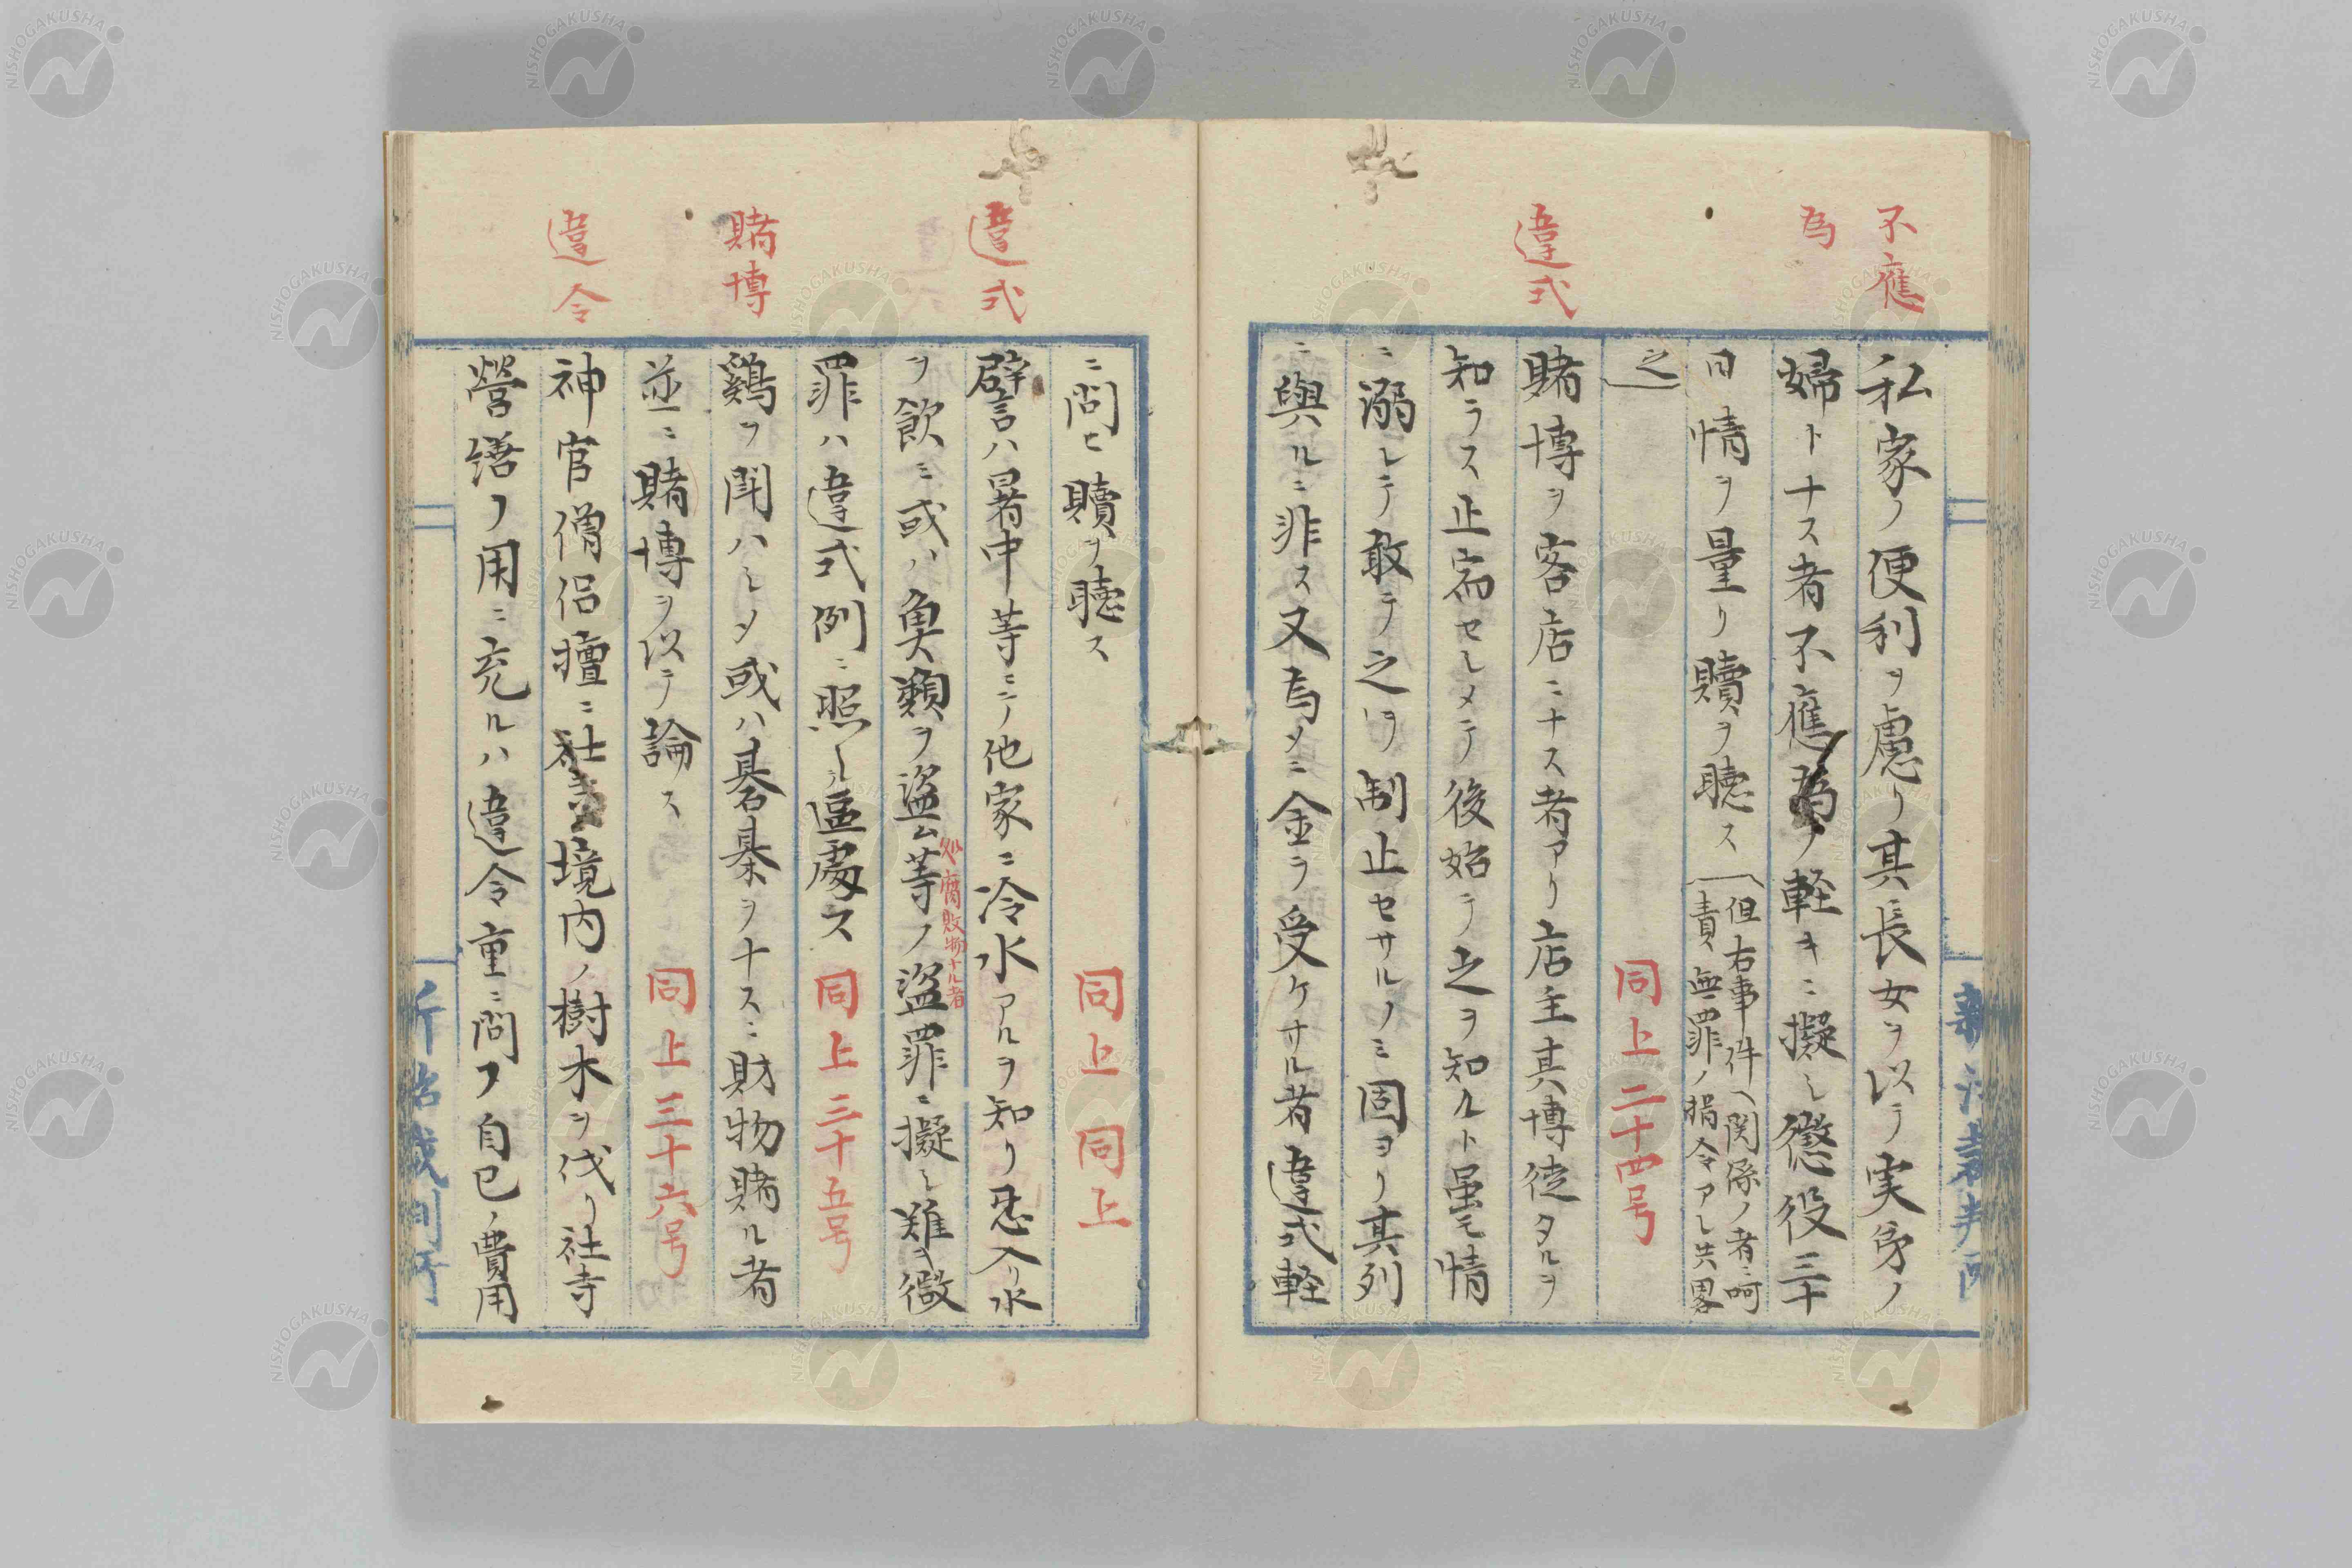 不應
為
私家ノ便利ヲ慮リ其長女ヲ以テ実弟ノ
婦トナス者不應為ノ軽キニ擬シ懲役三十
日情ヲ量リ贖ヲ聴ス
但右事件ヘ関係ノ者ニ呵
責無罪ノ損令アレ共畧
之
同上二十四号
違式
賭博ヲ客店ニナス者アリ店主其博徒タルヲ
知ラス止宿セシメテ後始テ之ヲ知ルト虽モ情
ニ溺レテ敢テ之ヲ制止セサルノミ固ヨリ其列
ニ與ルニ非ス又為メニ金ヲ受ケサル者違式軽
ニ問ヒ贖ヲ聴ス
同上同上
違式
譬ハ暑中等ニテ他家ニ冷水アルヲ知リ忍入リ水
ヲ飲ミ或ハ魚類ヲ盗ム等ノ盗罪ニ擬シ難ク微
処腐敗物ナル者
罪ハ違式例ニ照シ區處ス
同上三十五号
賭博
鷄ヲ闘ハシメ或ハ碁棊ヲナスニ財物賭ル者
並ニ賭博ヲ以テ論ス
同上三十六号
違令
神官僧侶擅ニ社寺境内ノ樹木ヲ伐リ社寺
營繕ノ用ニ充ルハ違令重ニ問フ自己ノ費用
新治裁判所
新治裁判所
NISHOGAKUSHA